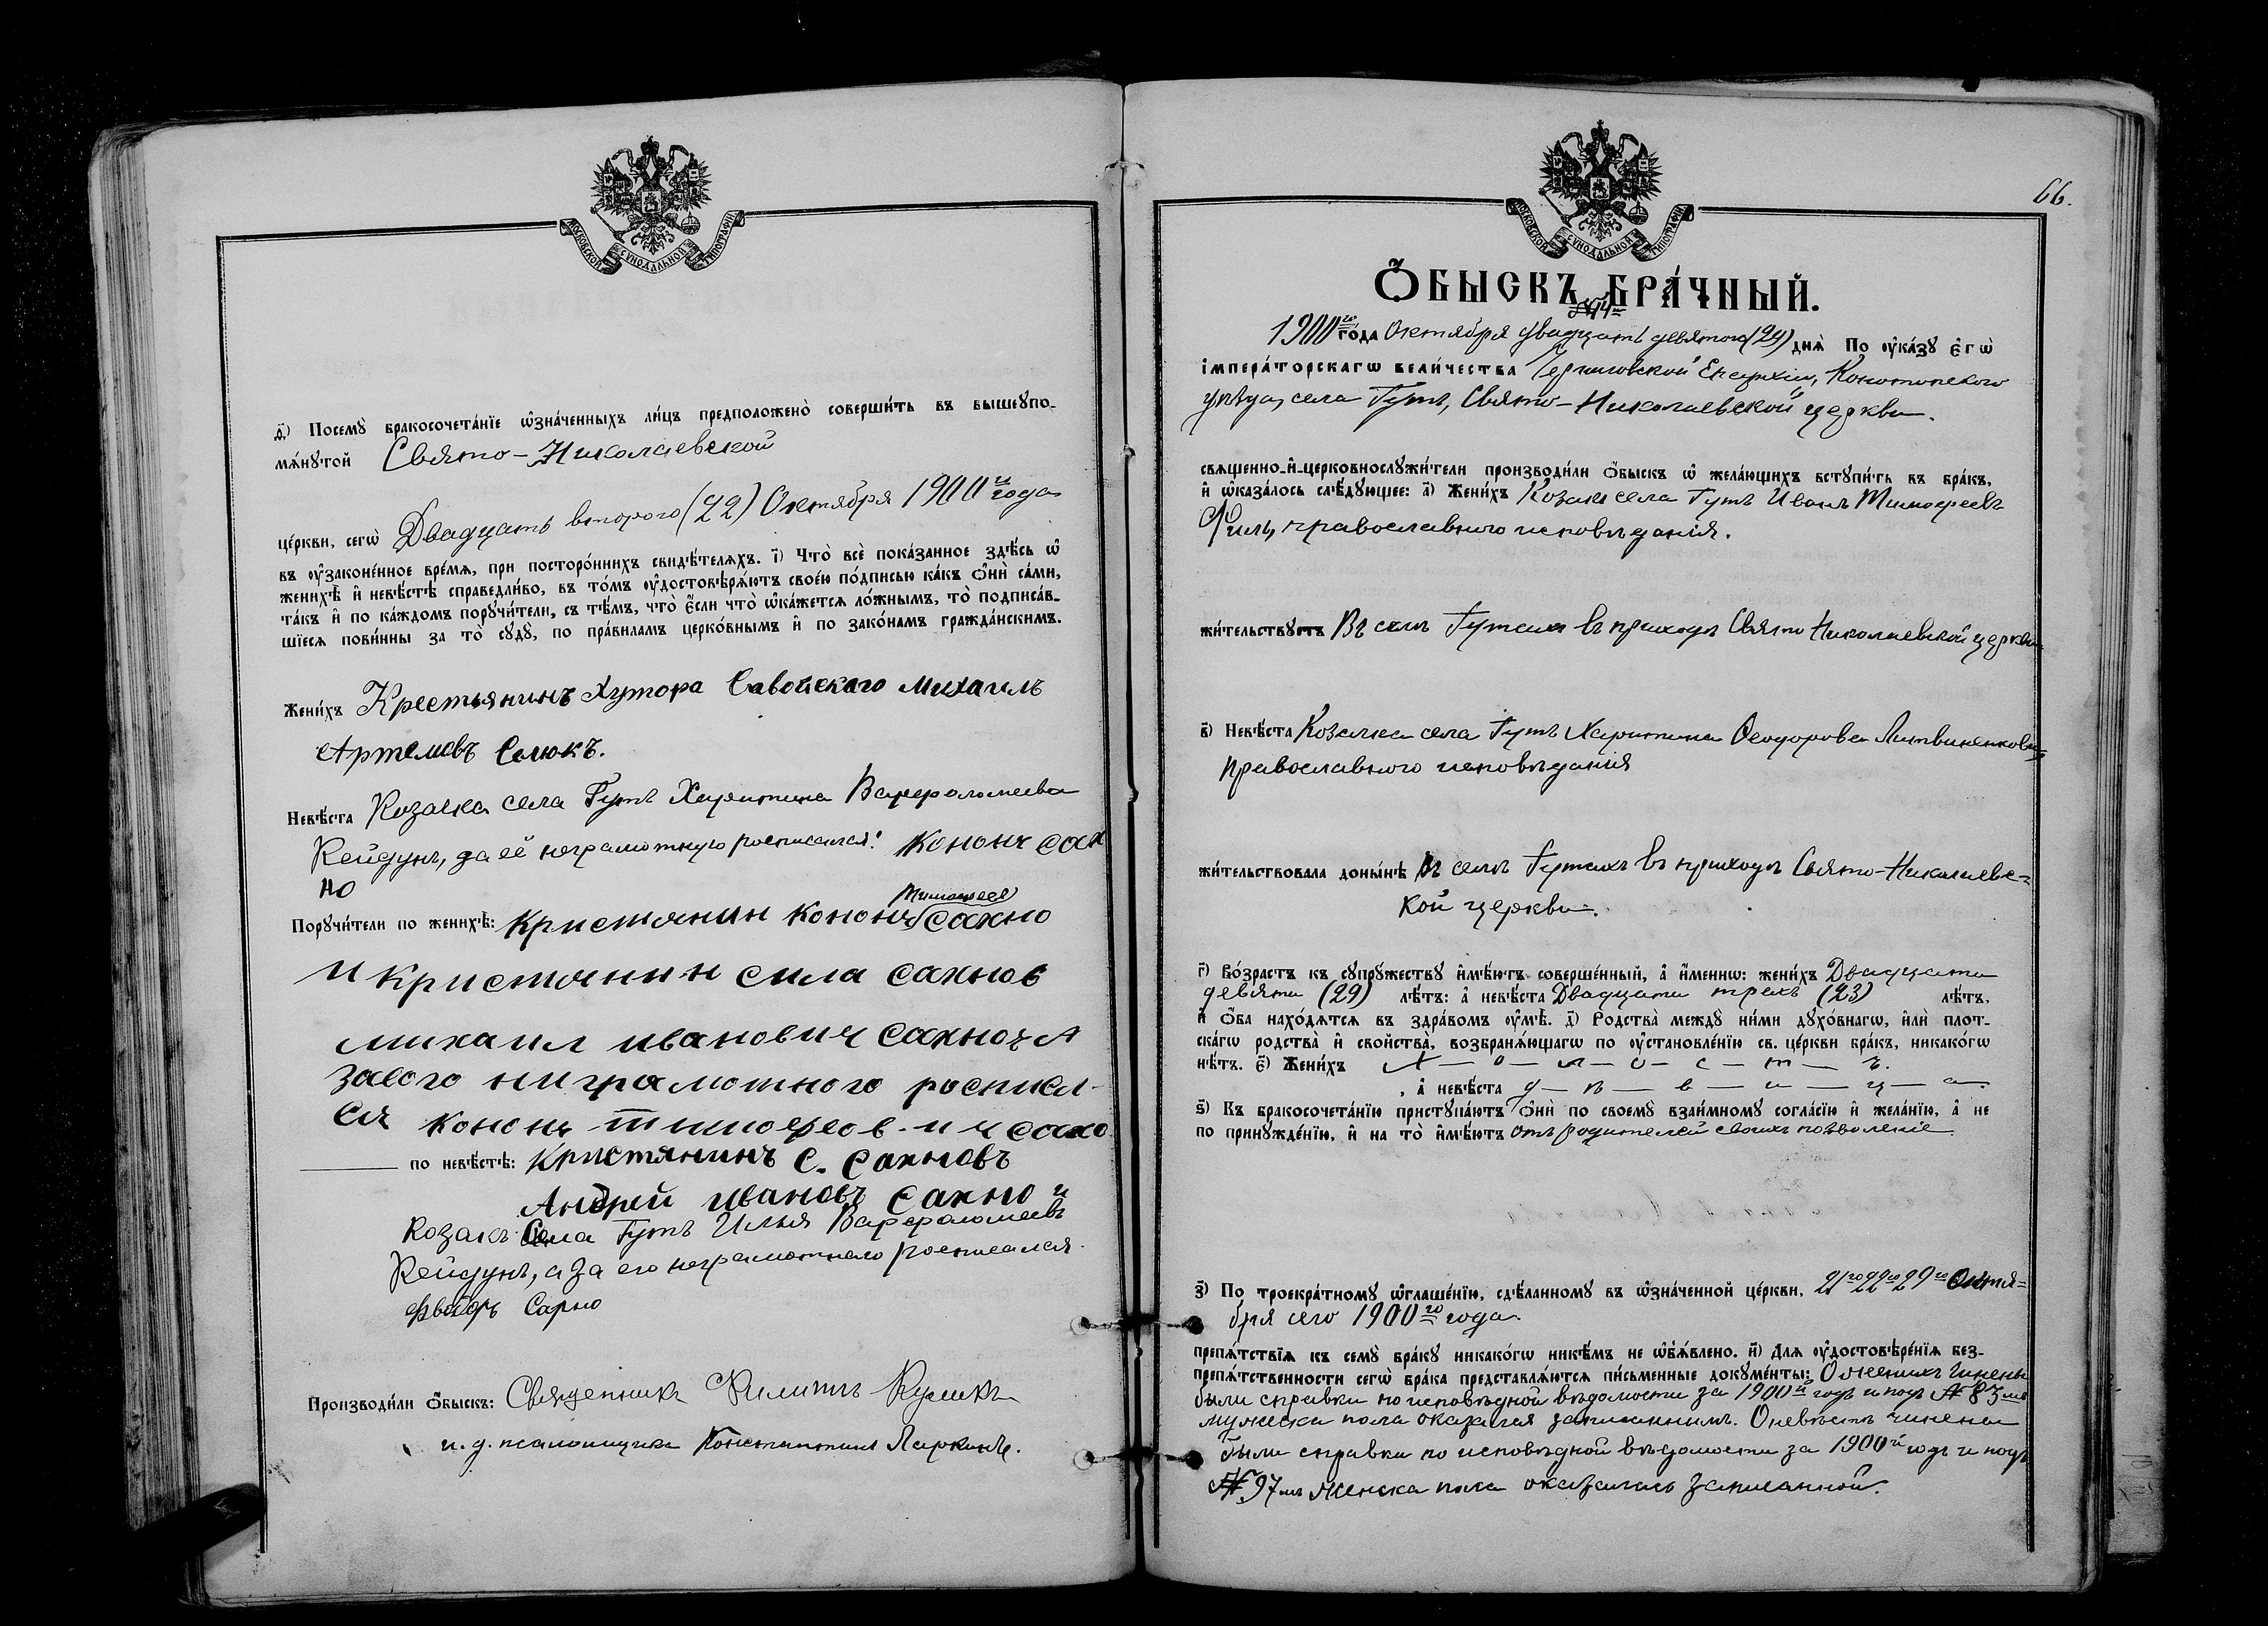 МОСКОВСКОЙ СѴНОДАЛЬНОЙ ТИПОГРАФІИ
д҃і) Посемꙋ̀ бракосочета́нїе ѡ҆зна́ченныхъ ли́цъ предположено̀ соверши́ть въ вышеꙋпо-
мѧ́нꙋтой Свято-Николаевской
це́ркви, сегѡ̀ Двадцать второго (22) Октября 1900 го года
въ ᲂу҆законе́нное вре́мѧ, при посторо́ннихъ свидѣ́телѧхъ. і҃) Что̀ всѐ пока́занное здѣ́сь ѡ҆
женихѣ̀ и҆ невѣ́стѣ справедли́во, въ то́мъ ᲂу҆достовѣрѧ́ютъ свое́ю по́дписью ка́къ ѻ҆нѝ са́ми,
та́къ и҆ по ка́ждомъ порꙋчи́тели, съ тѣ́мъ, что̀ є҆́сли что̀ ѡ҆ка́жетсѧ ло́жнымъ, то̀ подписа́в-
шїесѧ пови́нны за то̀ сꙋдꙋ̀, по пра́виламъ церко́внымъ и҆ по зако́намъ гражда́нскимъ.
Жени́хъ Крестьянинъ Хутора Савойскаго Михаилъ
Артемовъ Селюкъ.
Невѣ́ста Козачка села Гутъ Харитина Варфоломеева
Кейдунъ, за её неграмотную росписался: Кононъ Сах
но
Тимофеев
Порꙋчи́тели по женихѣ̀: Кристянин Кононъ Сахно
и кристянин сила сахнов
михаил иванович сахно а
за его ниграмотного росписал
ся Кононъ тимофеов-ич сахно
по невѣ́стѣ: Кристянинъ С. Сахновъ
Андрей ивановъ Сахно и
Козакъ Села Гутъ Илья Варфоломеевъ
Кейдунъ, а за его неграмотнаго росписался
Сахно
Производи́ли ѻ҆́быскъ: Священникъ Филиппъ Куликъ
и. д. псаломщика Константинъ Ларкинъ.
66.
МОСКОВСКОЙ СѴНОДАЛЬНОЙ ТИПОГРАФІИ
Ѻ҆БЫСКЪ БРА́ЧНЫЙ.
№ 14 й
1900 го го́да Октября двадцать девятого (29) днѧ̀ По ᲂу҆ка́зꙋ є҆гѡ̀
і҆мпера́торскагѡ вели́чества Черниговской Епархіи, Конотопского
уѣзда, села Гутъ, Свято-Николаевской церкви.
свѧщенно-и҆-церковнослꙋжи́тели производи́ли ѻ҆́быскъ ѡ҆ жела́ющихъ встꙋпи́ть въ бра́къ,
и҆ ѡ҆каза́лось слѣ́дꙋющее: а҃) Жени́хъ Козакъ села Гутъ Иванъ Тимофеевъ
Филь, православного исповѣданія.
жи́тельствꙋетъ Въ селѣ Гутахъ въ приходѣ Свято Николаевской церкви
в҃) Невѣ́ста Козачка села Гутъ Харитина Ѳеодорова Литвиненкова,
православного исповѣданія
жи́тельствовала доны́нѣ въ селѣ Гутахъ въ приходѣ Свято-Николаевс=
кой церкви.
г҃) Во́зрастъ къ сꙋпрꙋ́жествꙋ и҆мѣ́ютъ соверше́нный, а҆ и҆́меннѡ: жени́хъ Двадцати
девяти (29) лѣ́тъ: а҆ невѣ́ста Двадцати трехъ (23) лѣ́тъ,
и҆ ѻ҆́ба нахо́дѧтсѧ въ здра́вомъ ᲂу҆мѣ̀. д҃) Родства̀ междꙋ̀ ни́ми дꙋхо́внагѡ, и҆лѝ плот-
ска́гѡ родства̀ и҆ свойства̀, возбранѧ́ющагѡ по ᲂу҆становле́нїю св. це́ркви бра́къ, никако́гѡ
нѣ́тъ. є҃) Жени́хъ х — о — л — о — с — т — ъ.
, а҆ невѣ́ста д — ѣ — в — и — ц — а.
ѕ҃) Къ бракосочета́нїю пристꙋпа́ютъ ѻ҆нѝ по своемꙋ̀ взаи́мномꙋ согла́сїю и҆ жела́нїю, а҆ не
по принꙋжде́нїю, и҆ на то̀ и҆мѣ́ютъ отъ родителей своихъ позволеніе
з҃) По троекра́тномꙋ ѡ҆глаше́нїю, сдѣ́ланномꙋ въ ѡ҆зна́ченной це́ркви, 21 го 22 го 29 го Октя=
бря сего 1900 го года.
препѧ́тствїѧ къ семꙋ̀ бра́кꙋ никако́гѡ никѣ́мъ не ѡ҆б̾ѧ́влено. и҃) Для ᲂу҆достовѣре́нїѧ без-
препѧ́тственности сегѡ̀ бра́ка представлѧ́ютсѧ пи́сьменные докꙋме́нты: О женихѣ чинены
были справки по исповѣдной вѣдомости за 1900 й годъ и подъ № 83 мъ
мужеска пола оказался записаннымъ. О невѣстѣ чинены
были справки по исповѣдной вѣдомости за 1900 й годъ и подъ
№ 97 мъ женска пола оказалась записанной.